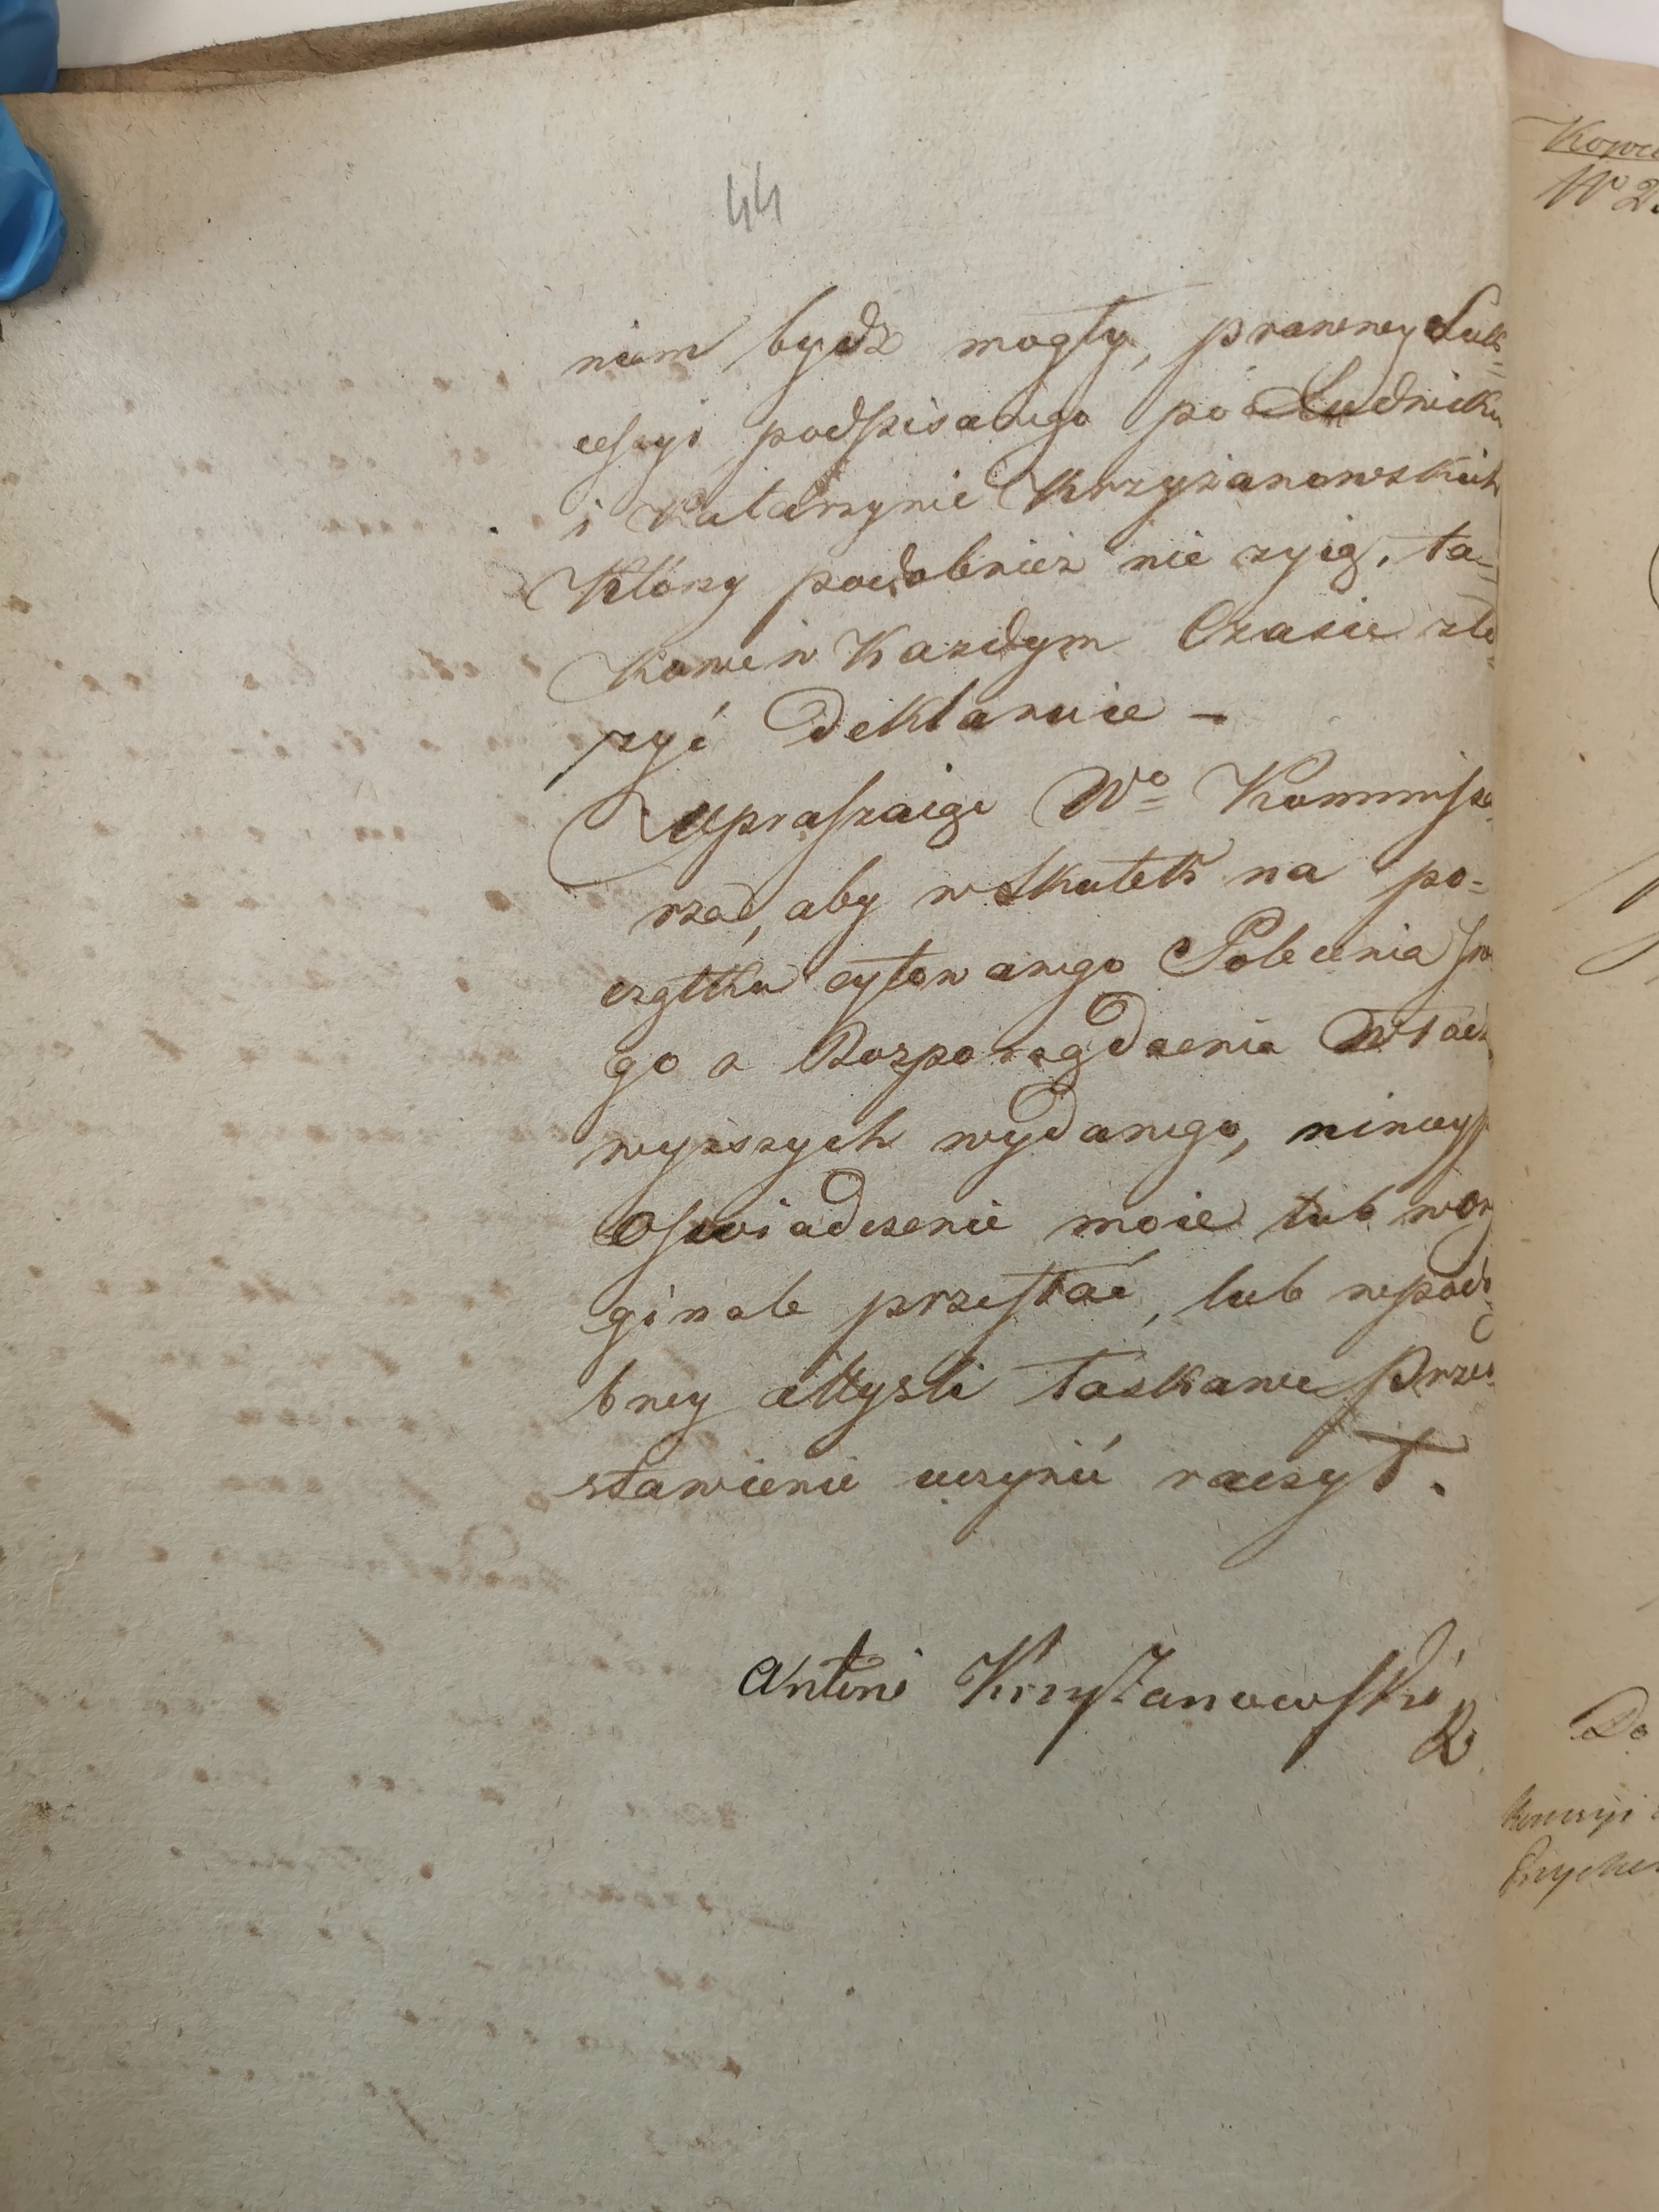 44
nim bydź mogły, prawney Suk-
cessyi podpisanego po Ludwiku
i Katarzynie Krzyżanowskich
Którzy podobnież nie zyią, ta-
kowe w Kazdym Czasie zło-
zyć deklaruie –
Upraszaiąc Wo Kommissa
rza, aby w skutek na po-
czątku cytowanego Polecenia
go z Rozporządzenia Władz
wyższych wydanego,
Oswiadczenie moie lub w ory
ginale przesłać, lub w podo
bney Mysli łaskawe Przed-
stawienie uczynić raczył.
Antoni Krzyżanowski
Kopia
No 2
Do
Kommisyi